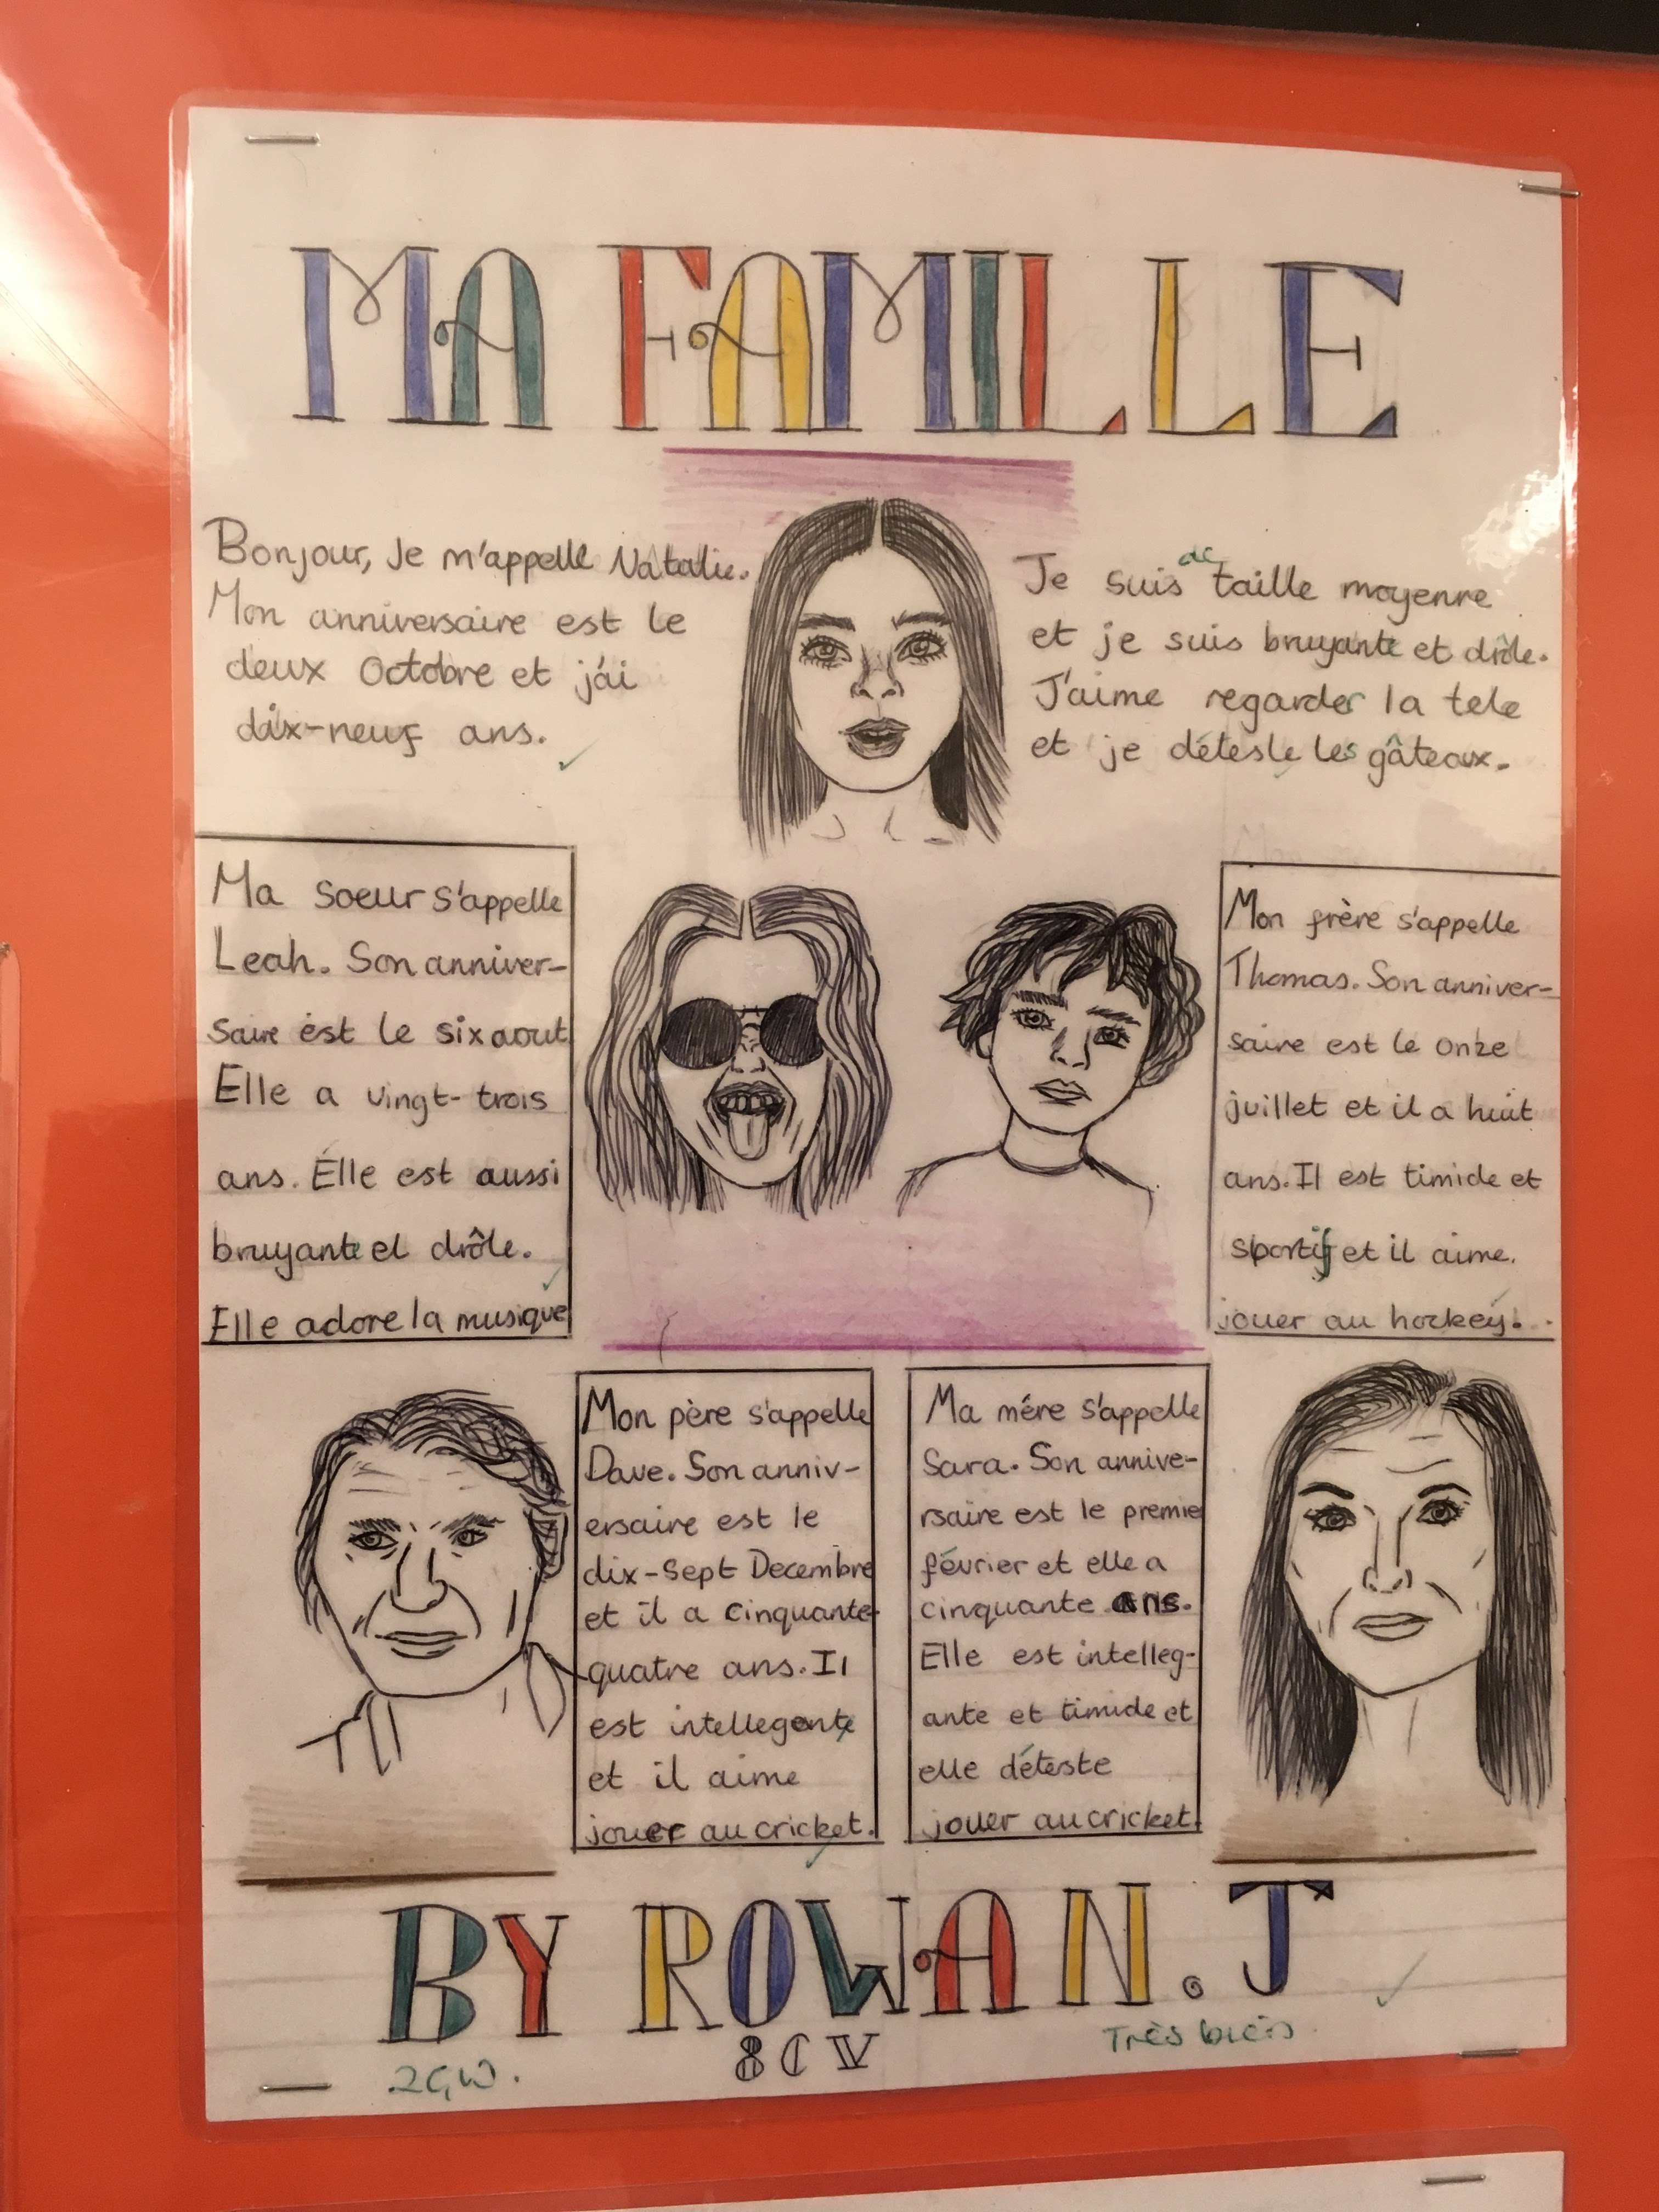 MA FAMILLE
Bonjour, Je m'appelle Natalie.
Mon anniversaire est le
deux Octobre et j'ai
dix-neuf ans.
de
Je suis taille moyenne
et je suis bruyante et drôle.
J'aime regarder la tele
et je déteste les gâteaux.
Ma soeur s'appelle
Leah. Son anniver-
saire est le six aout
Elle a vingt-trois
ans. Elle est aussi
bruyante et drôle.
Elle adore la musique
Mon frère s'appelle
Thomas. Son anniver-
saire est le onze
juillet et il a huit
ans. Il est timide et
sportif et il aime.
jouer au hockey.
Mon père s'appelle
Dave. Son anniv-
ersaire est le
dix-Sept Decembre
et il a cinquante-
quatre ans. Il
est intellegente
et il aime
jouer au cricket.
Ma mére s'appelle
Sara. Son annive-
rsaire est le premie
février et elle a
cinquante ans.
Elle est intelleg-
ante et timide et
elle déteste
jouer au cricket.
BY ROWAN.J
8CV
Très bien